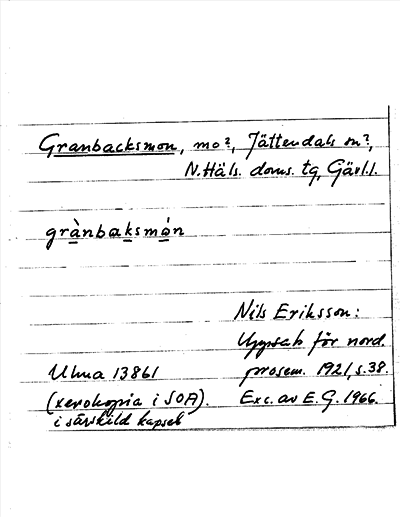 Granbacksmon, mo?, Jättendals sn?,
N. Häls. doms. tg, Gävl.l.
grànbaksmón
Nils Eriksson:
Uppsats för nord.
Ulma 13861 prosem. 1921, s. 38.
(xerokopia i SOA). Exc. av E. G. 1966.
i särskild kapsel